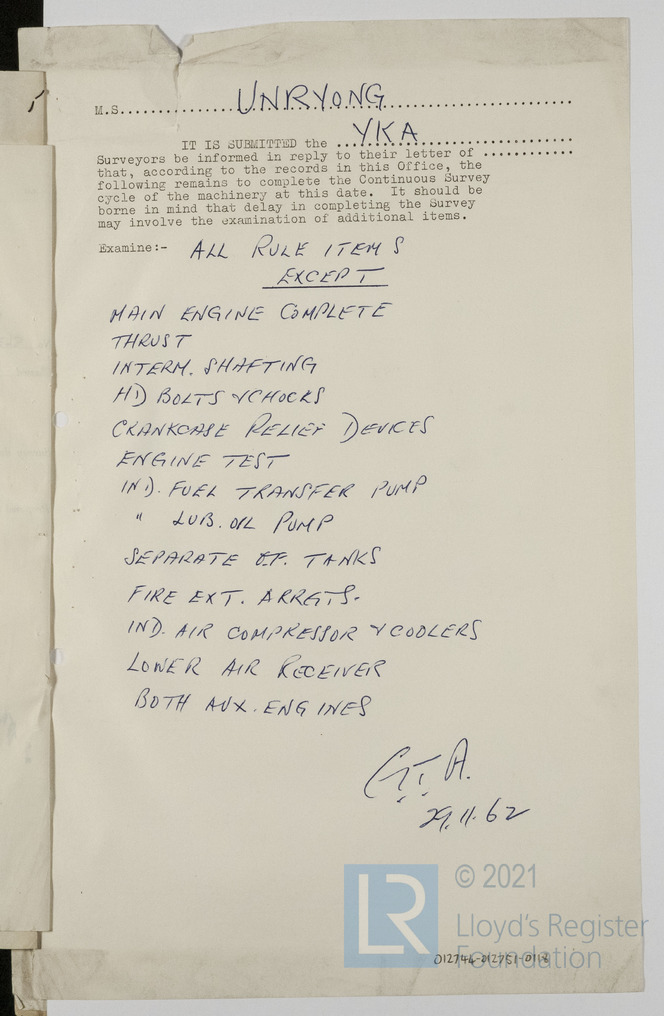 M.S. UNRYONG
IT IS SUBMITTED the YKA
Surveyors be informed in reply to their letter of ............
that, according to the records in this Office, the
following remains to complete the Continuous Survey
cycle of the machinery at this date. It should be
borne in mind that delay in completing the Survey
may involve the examination of additional items.
Examine:- ALL RULE ITEMS
EXCEPT
MAIN ENGINE COMPLETE
THRUST
INTERM. SHAFTING
HD BOLTS & CHOCKS
CRANKCASE RELIEF DEVICES
ENGINE TEST
IND. FUEL TRANSFER PUMP
" LUB. OIL PUMP
SEPARATE O.F. TANKS
FIRE EXT. ARRGTS.
IND. AIR COMPRESSOR & COOLERS
LOWER AIR RECEIVER
BOTH AUX. ENGINES
29.11.62
© 2021
LR
Lloyd's Register
Foundation
012744-012751-0118